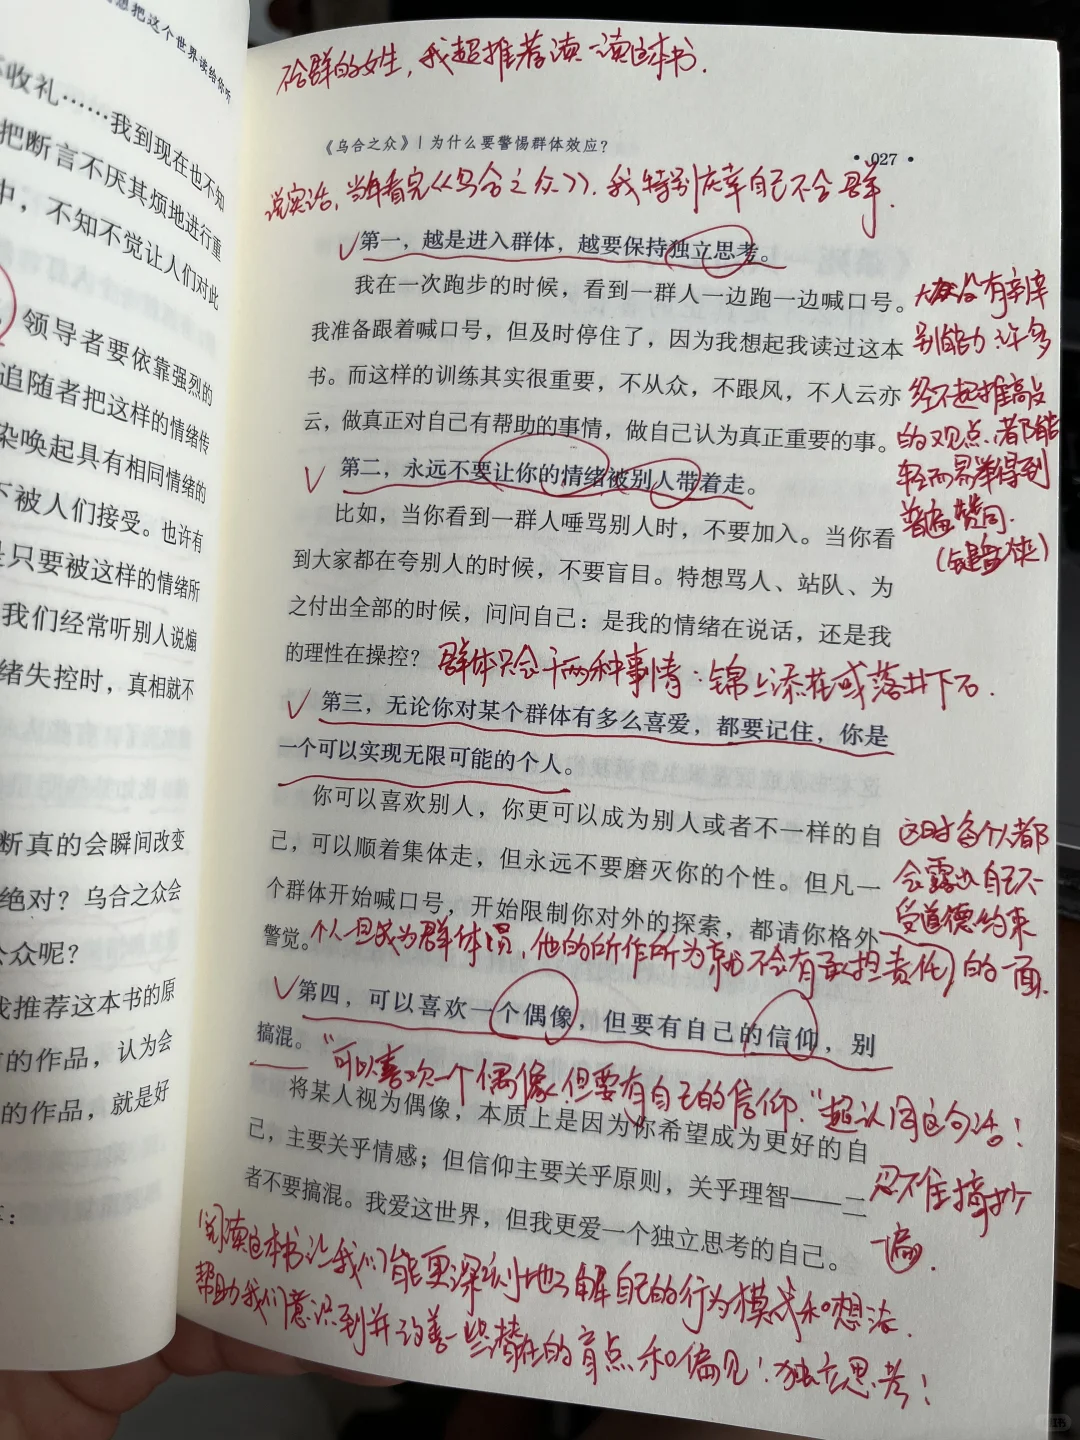 想把这个世界读给你听
收礼……我到现在也不知
把断言不厌其烦地进行重
中，不知不觉让人们对此
领导者要依靠强烈的
追随者把这样的情绪传
染唤起具有相同情绪的
不被人们接受。也许有
是只要被这样的情绪所
我们经常听别人说煽
绪失控时，真相就不
断真的会瞬间改变
绝对？乌合之众会
公众呢？
我推荐这本书的原
的作品，认为会
的作品，就是好
不合群的女生，我超推荐读一读这本书．
《乌合之众》 | 为什么要警惕群体效应？
• 027 •
说实话，当年看完《《乌合之众》》．我特别庆幸自己不合群．
第一，越是进入群体，越要保持独立思考。
我在一次跑步的时候，看到一群人一边跑一边喊口号。
我准备跟着喊口号，但及时停住了，因为我想起我读过这本
书。而这样的训练其实很重要，不从众，不跟风，不人云亦
云，做真正对自己有帮助的事情，做自己认为真正重要的事。
大众没有辛辛
别能力，许多
经不起推敲
的观点，都能
轻而易举得到
普遍赞同．
（键盘侠）
第二，永远不要让你的情绪被别人带着走。
比如，当你看到一群人唾骂别人时，不要加入。当你看
到大家都在夸别人的时候，不要盲目。特想骂人、站队、为
之付出全部的时候，问问自己：是我的情绪在说话，还是我
的理性在操控？
群体只会干两种事情：锦上添花或落井下石．
第三，无论你对某个群体有多么喜爱，都要记住，你是
一个可以实现无限可能的个人。
你可以喜欢别人，你更可以成为别人或者不一样的自
己，可以顺着集体走，但永远不要磨灭你的个性。但凡一
个群体开始喊口号，开始限制你对外的探索，都请你格外
警觉。
个人一旦成为群体一员，他的所作所为就不会有承担责任，
这时每个人都
会露出自己不
受道德约束
的一面．
第四，可以喜欢一个偶像，但要有自己的信仰，别
搞混。
“可以喜欢一个偶像，但要有自己的信仰．”超认同这句话！
忍不住摘抄
一遍．
将某人视为偶像，本质上是因为你希望成为更好的自
己，主要关乎情感；但信仰主要关乎原则，关乎理智——二
者不要搞混。我爱这世界，但我更爱一个独立思考的自己。
阅读这本书让我们能更深刻地了解自己的行为模式和想法．
帮助我们意识到并改善一些潜在的盲点和偏见！独立思考！